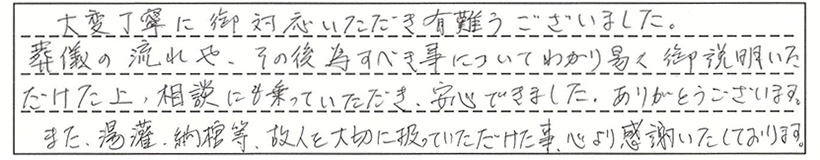 大変丁寧に御対応いただき有難うございました。
葬儀の流れや、その後為すべき事についてわかり易く御説明いた
だけた上、相談にも乗っていただき、安心できました。ありがとうございます。
また、湯灌、納棺等、故人を大切に扱っていただけた事、心より感謝いたしております。